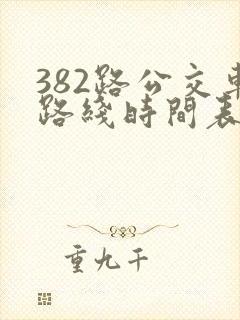 382路公交車
路綫時間表
重九千